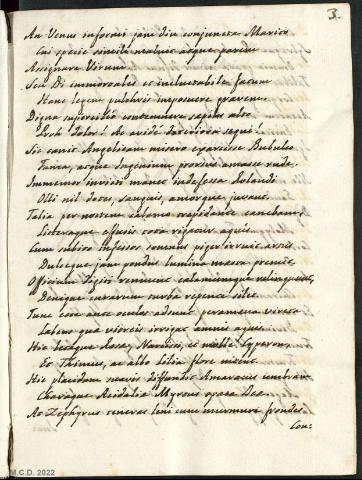 3.
An Venus informi jam diu conjuncta Marito
Cui specie simili maluit atque
Assignare Virum
Seu Di immortales et ineluctabile fatum
Hanc legem pulchris imposuere gravem.
Digna supercilio contemnere sapius alto
Proh dolor! ac avide deteriora sequi!
Sic canit Angelicam misero exarsisse Bubulco
Turca, atque Ingenium prorsus amasse rude.
Immemor invicti manet indefessa Rolandi
Olli nil dotes, sanguis, amorque juvant.
Talia per noctem calamo crepidante canebam
Litteraque effusis rora rigavit aquis.
Cum subito infessos somnus piger occupat artus
Dulceque jam pondus lumina mœsta premit,
Officium digiti renuunt calamumque relinquunt,
Denique curarum turba repente silet.
Tunc core ante oculos adsunt peramœna vireta
Labens qua vitreis irrigat amnis aquis.
Hic lætæque Rosæ, Narcissi, et molle Cyperon,
Et Thimus, ac albo lilia flore nitent.
Hic placidam suavis diffundit Amaracus umbram
Charaque Acidaliæ Myrtus opaca Deæ.
Ac Zephyrus teneras leni cum murmure frondes
Con:
M.C.D. 2022